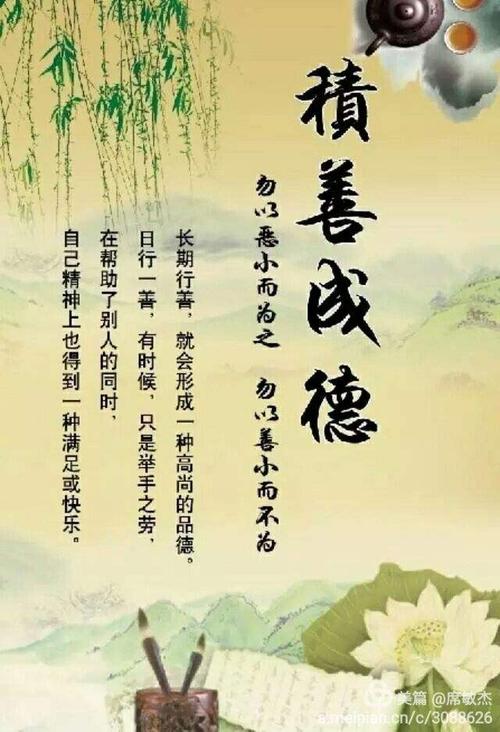 積善成德
勿以惡小而为之 勿以善小而不为
长期行善，就会形成一种高尚的品德。
日行一善，有时候，只是举手之劳，
在帮助了别人的同时，
自己精神上也得到一种满足或快乐。
美篇 @席敏杰
a.meipian.cn/c/3088626